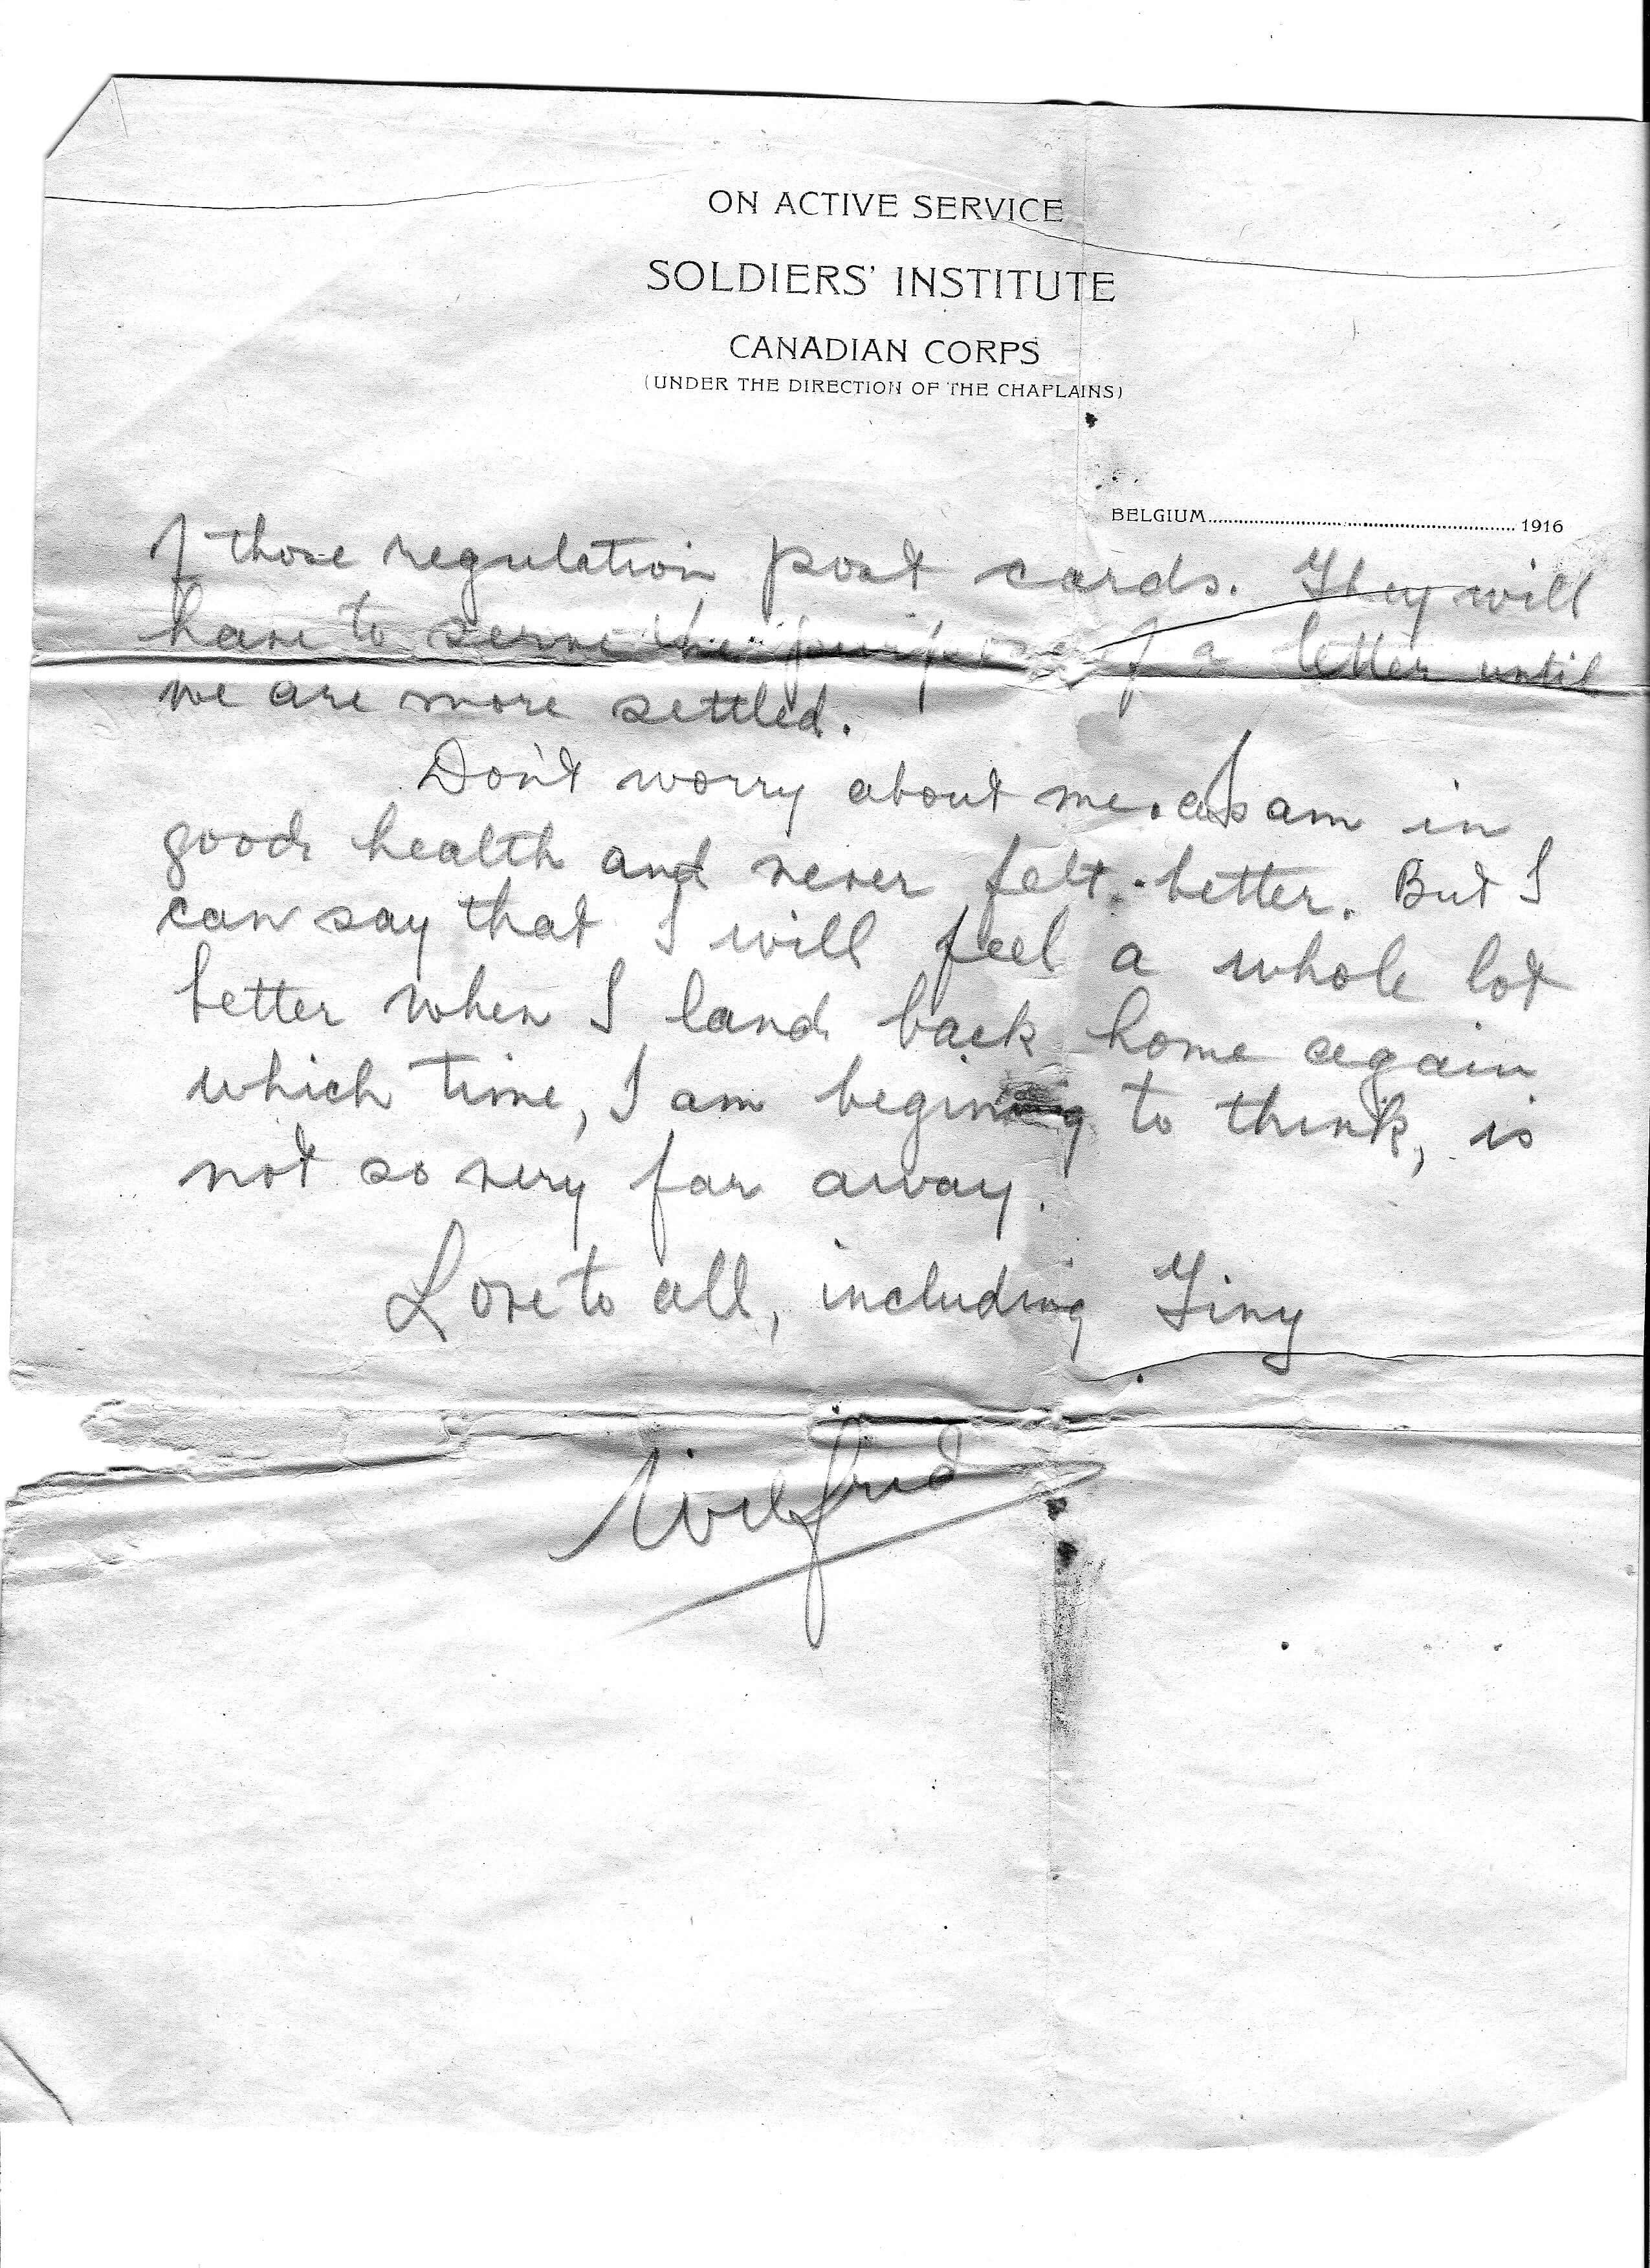 ON ACTIVE SERVICE
SOLDIERS' INSTITUTE
CANADIAN CORPS
(UNDER THE DIRECTION OF THE CHAPLAINS)
BELGIUM........................................................ 1916
of those regulation post cards. They will
have to serve the purpose of a letter until
we are more settled.
Don't worry about me. I am in
good health and never felt better. But I
can say that I will feel a whole lot
better when I land back home again
which time, I am begining to think, is
not so very far away.
Love to all, including Tiny
Wilfrid